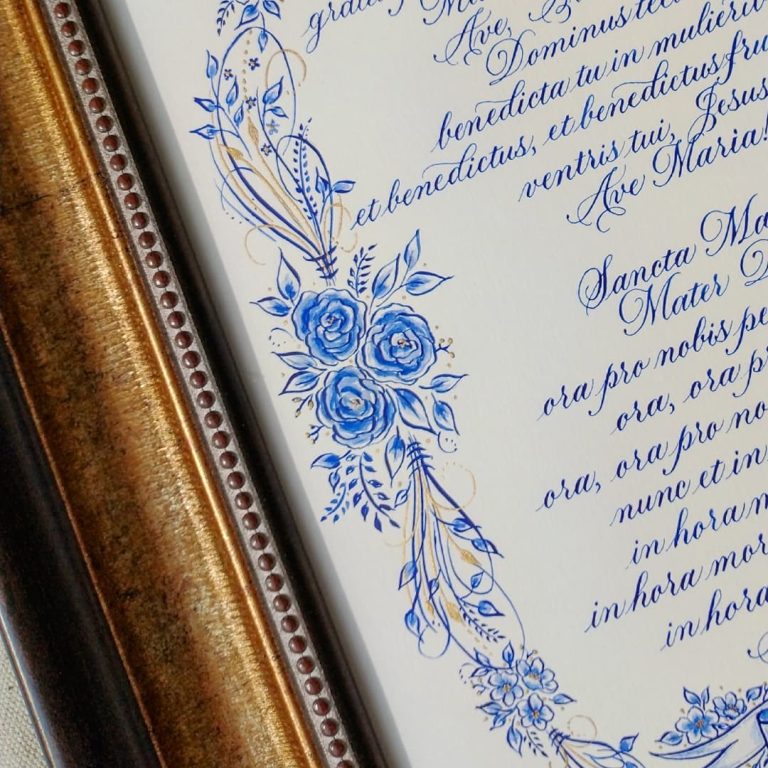 Ave,
Dominus
benedicta tu in
et benedictus, et benedictus
ventris tui, Jesus
Ave Maria!
Sancta
Mater
ora pro nobis
ora, ora
ora, ora pro
nunc et in
in hora
in hora
in hora